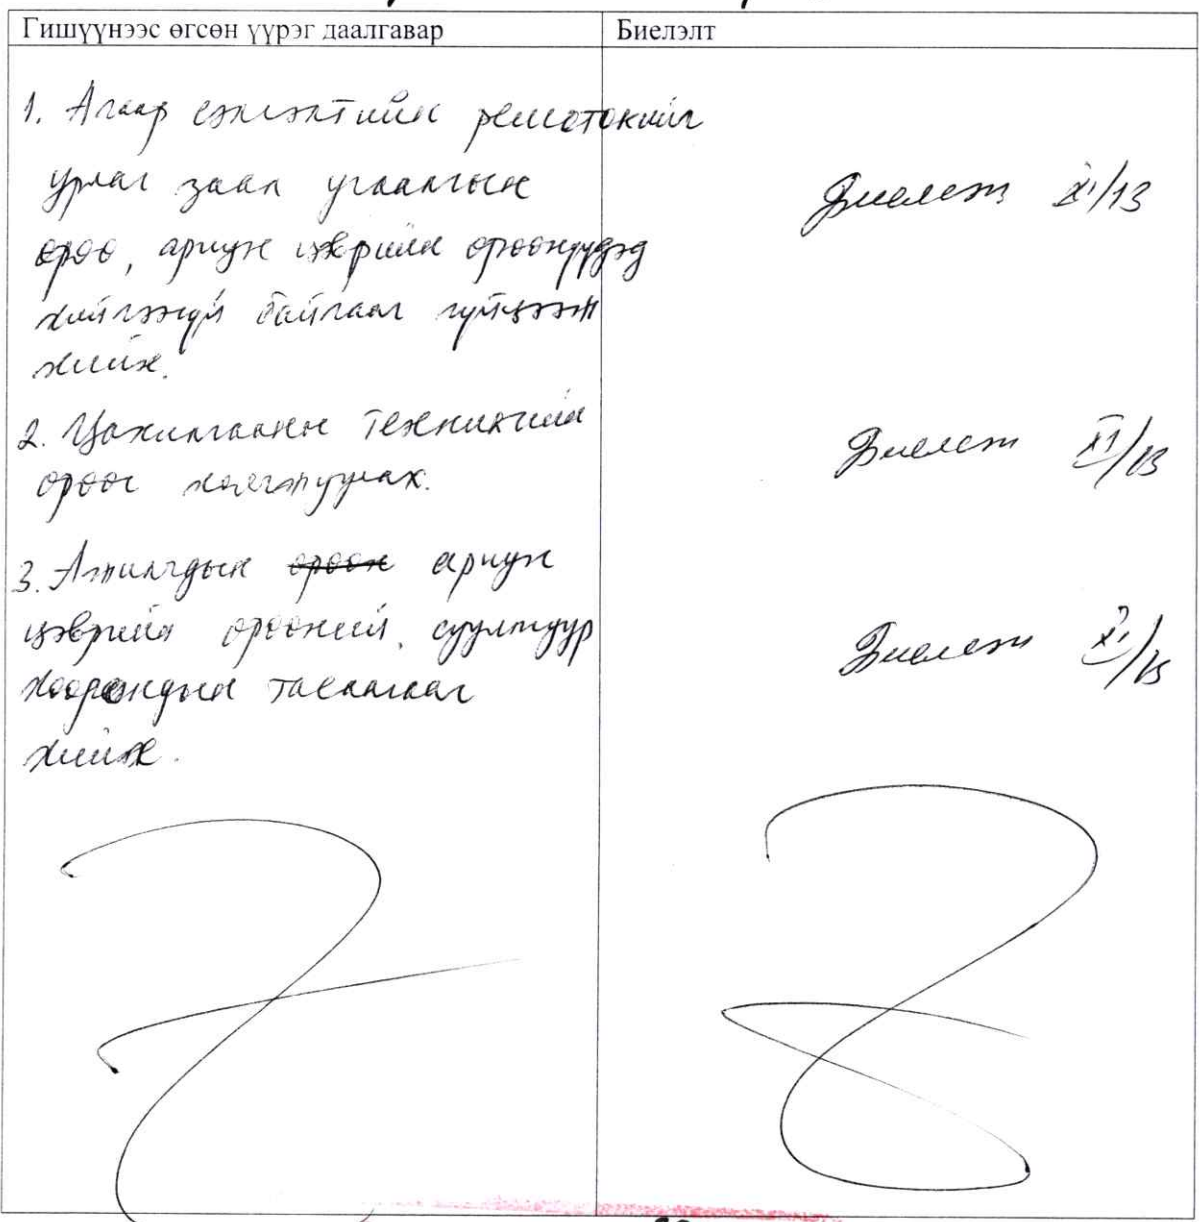 Гишүүнээс өгсөн үүрэг даалгавар
Биелэлт
1. Агаар сэлгэлтийн решоткийг
урлаг заал угаалгын
өрөө, ариун цэврийн өрөөнүүдэд
хийгээгүй байгааг гүйцээж
хийх.
Биелсэн XI/13
2. Цахилгааны техникийн
өрөөг
Биелсэн XI/13
3. Ажилчдын өрөөн ариун
цэврийн өрөөний, суултуур
хоорондын тасалгааг
хийх.
Биелсэн XI/13